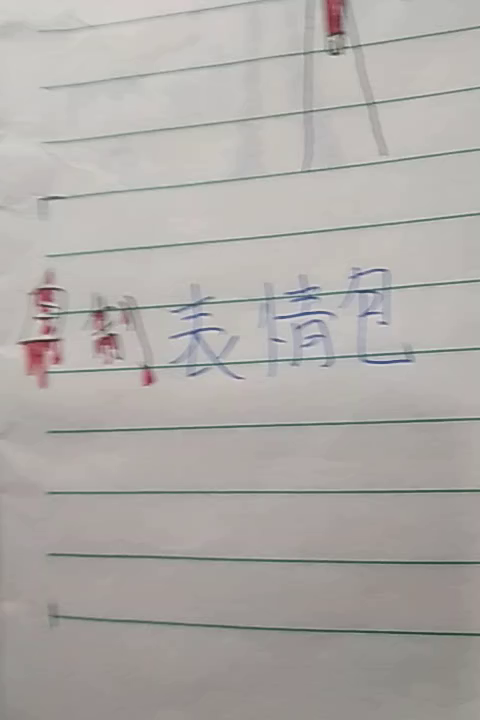 单制表情包